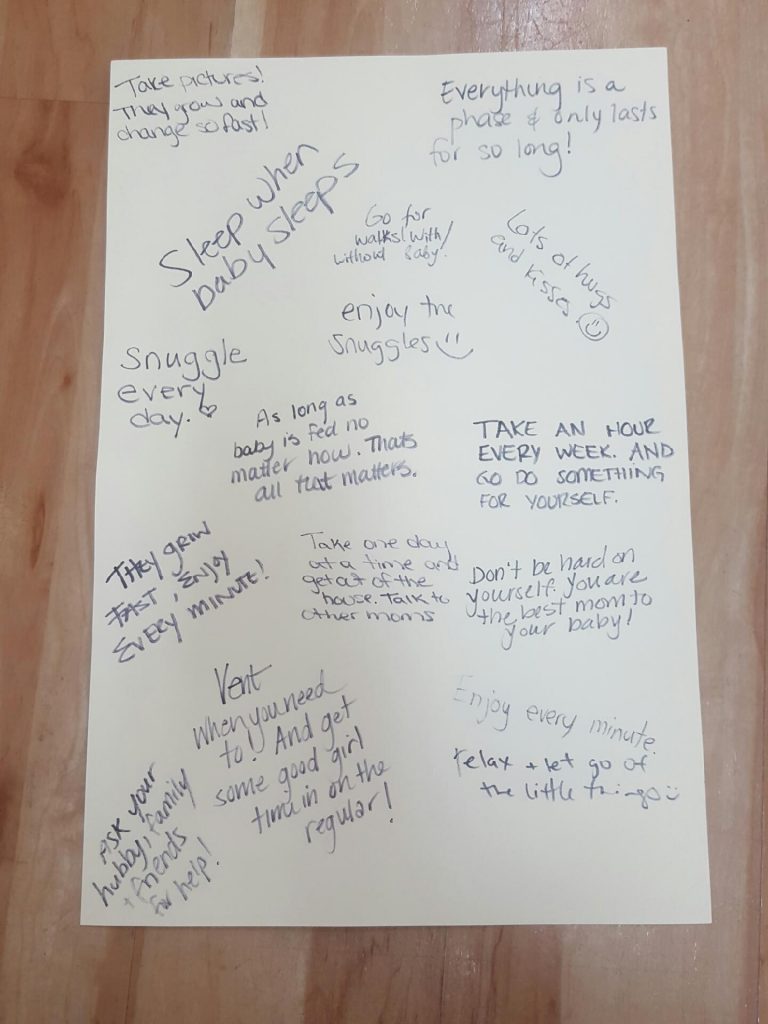 Take pictures!
They grow and
change so fast!
Everything is a
phase & only lasts
for so long!
Sleep when
baby sleeps
Go for
walks! with/
without baby!
Lots of hugs
and kisses
enjoy the
snuggles
Snuggle
every
day.
As long as
baby is fed no
matter how. Thats
all that matters.
TAKE AN HOUR
EVERY WEEK. AND
GO DO SOMETHING
FOR YOURSELF.
THEY GROW
FAST, ENJOY
EVERY MINUTE!
Take one day
at a time and
get out of the
house. Talk to
other moms
Don't be hard on
yourself. you are
the best mom to
your baby!
Vent
when you need
to! And get
some good girl
time in on the
regular!
Enjoy every minute.
relax + let go of
the little things
Ask your
hubby, family
+ friends
for help!